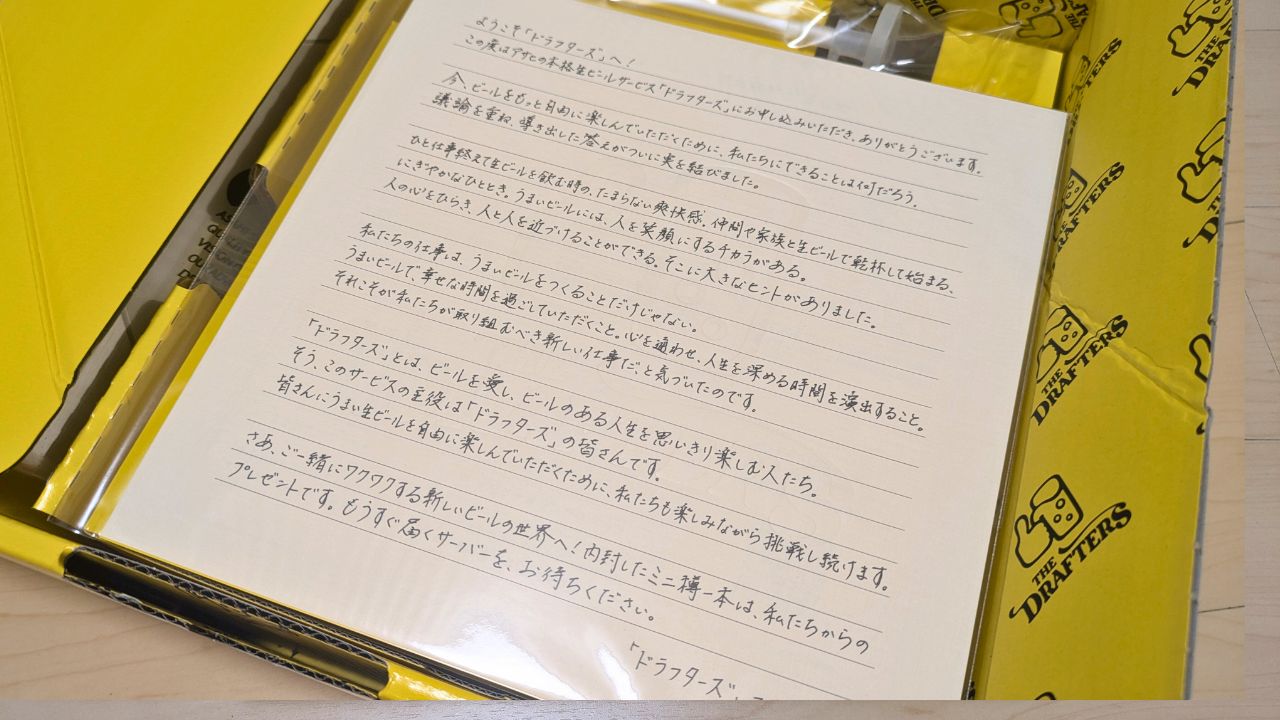 ようこそ「ドラフターズ」へ!
この度はアサヒの本格生ビールサービス「ドラフターズ」にお申し込みいただき、ありがとうございます。
今、ビールをもっと自由に楽しんでいただくために、私たちにできることは何だろう。
議論を重ね、導き出した答えがついに実を結びました。
ひと仕事終えて生ビールを飲む時の、たまらない爽快感。仲間や家族と生ビールで乾杯して始まる、
にぎやかなひととき。うまいビールには、人を笑顔にするチカラがある。
人の心をひらき、人と人を近づけることができる。そこに大きなヒントがありました。
私たちの仕事は、うまいビールをつくることだけじゃない。
うまいビールで幸せな時間を過ごしていただくこと。心を通わせ、人生を深める時間を演出すること。
それこそが私たちが取り組むべき新しい仕事だ、と気づいたのです。
「ドラフターズ」とは、ビールを愛し、ビールのある人生を思いきり楽しむ人たち。
そう、このサービスの主役は「ドラフターズ」の皆さんです。
皆さんにうまい生ビールを自由に楽しんでいただくために、私たちも楽しみながら挑戦し続けます。
さあ、ご一緒にワクワクする新しいビールの世界へ!内封したミニ樽一本は、私たちからの
プレゼントです。もうすぐ届くサーバーを、お待ちください。
「ドラフターズ」
THE
DRAFTERS
THE
DRAFTERS
THE
DRAFTERS
THE
DRAFTERS